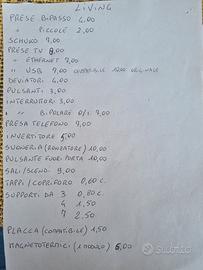 LIVING
PRESE BIPASSO 4,00
" PICCOLE 2,00
SCHUKO 7,00
PRESE TV 8,00
" ETHERNET 7,00
" USB 7,00 COMPATIBILE 12,00 ORIGINALE
DEVIATORI 4,00
PULSANTI 3,00
INTERRUTTORI 3,00
" " BIPOLARE 0/1 7,00
PRESA TELEFONO 7,00
INVERTITORE 5,00
SUONERIA (RONZATORE) 10,00
PULSANTE FUORI PORTA 10,00
SALI/SCENDI 9,00
TAPPI / COPRIFORO 0,60 C.
SUPPORTI DA 3 0,80 C.
4 1,50
7 2,50
PLACCA (COMPATIBILE) 1,50
MAGNETOTERMICI (1 MODULO) 6,00
subito